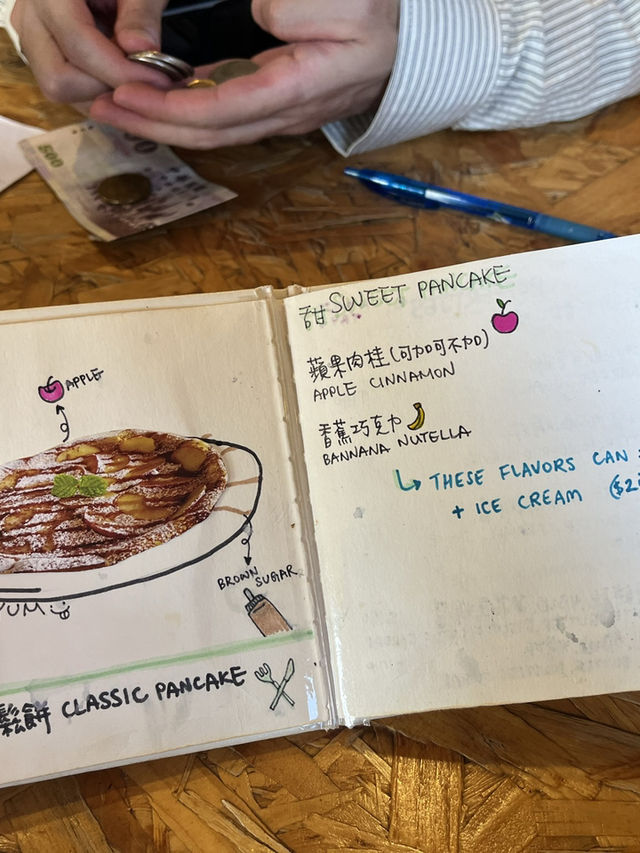 500
APPLE
BROWN SUGAR
YUM
鬆餅 CLASSIC PANCAKE
甜 SWEET PANCAKE
蘋果肉桂(可加可不加)
APPLE CINNAMON
香蕉巧克力
BANNANA NUTELLA
THESE FLAVORS CAN
+ ICE CREAM